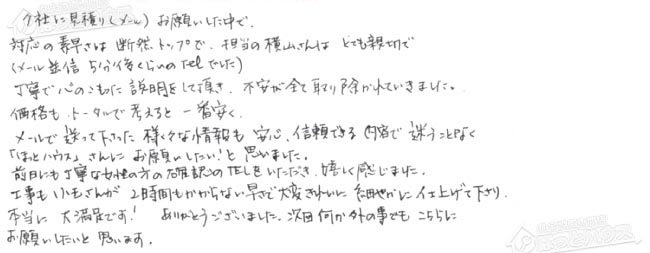 7社に見積り(メール)お願いした中で、
対応の素早さは断然トップで、担当の横山さんはとても親切で
(メール送信5分後くらいのTelでした)
丁寧で心のこもった説明をして頂き、不安が全て取り除かれていきました。
価格も、トータルで考えると一番安く、
メールで送って下さった様々な情報も安心、信頼できる内容で迷うことなく
「ほっとハウス」さんにお願いしたい!と思いました。
前日にも丁寧な女性の方の確認のTELをいただき、嬉しく感じました。
工事も さんが2時間もかからない早さで大変きれいに細やかに仕上げて下さり、
本当に大満足です! ありがとうございました。次回何か外の事でもこちらに
お願いしたいと思います。